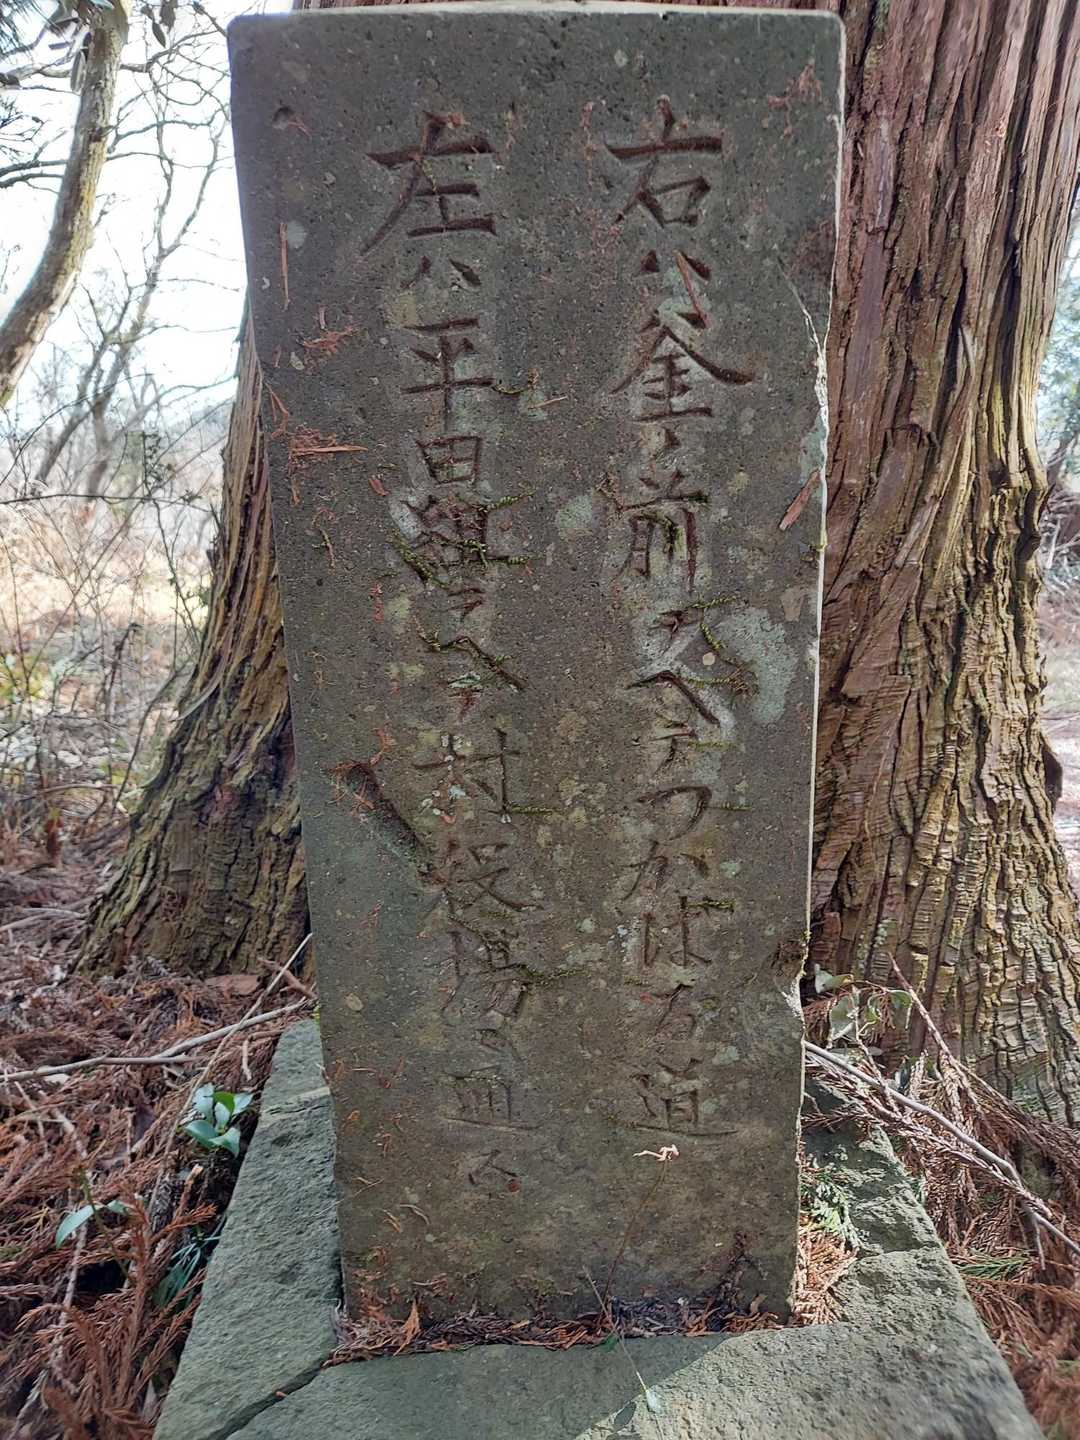 右ハ釜ノ前ヲヘテつかはる道
左ハ平田組ヲヘテ村役場ニ通ス